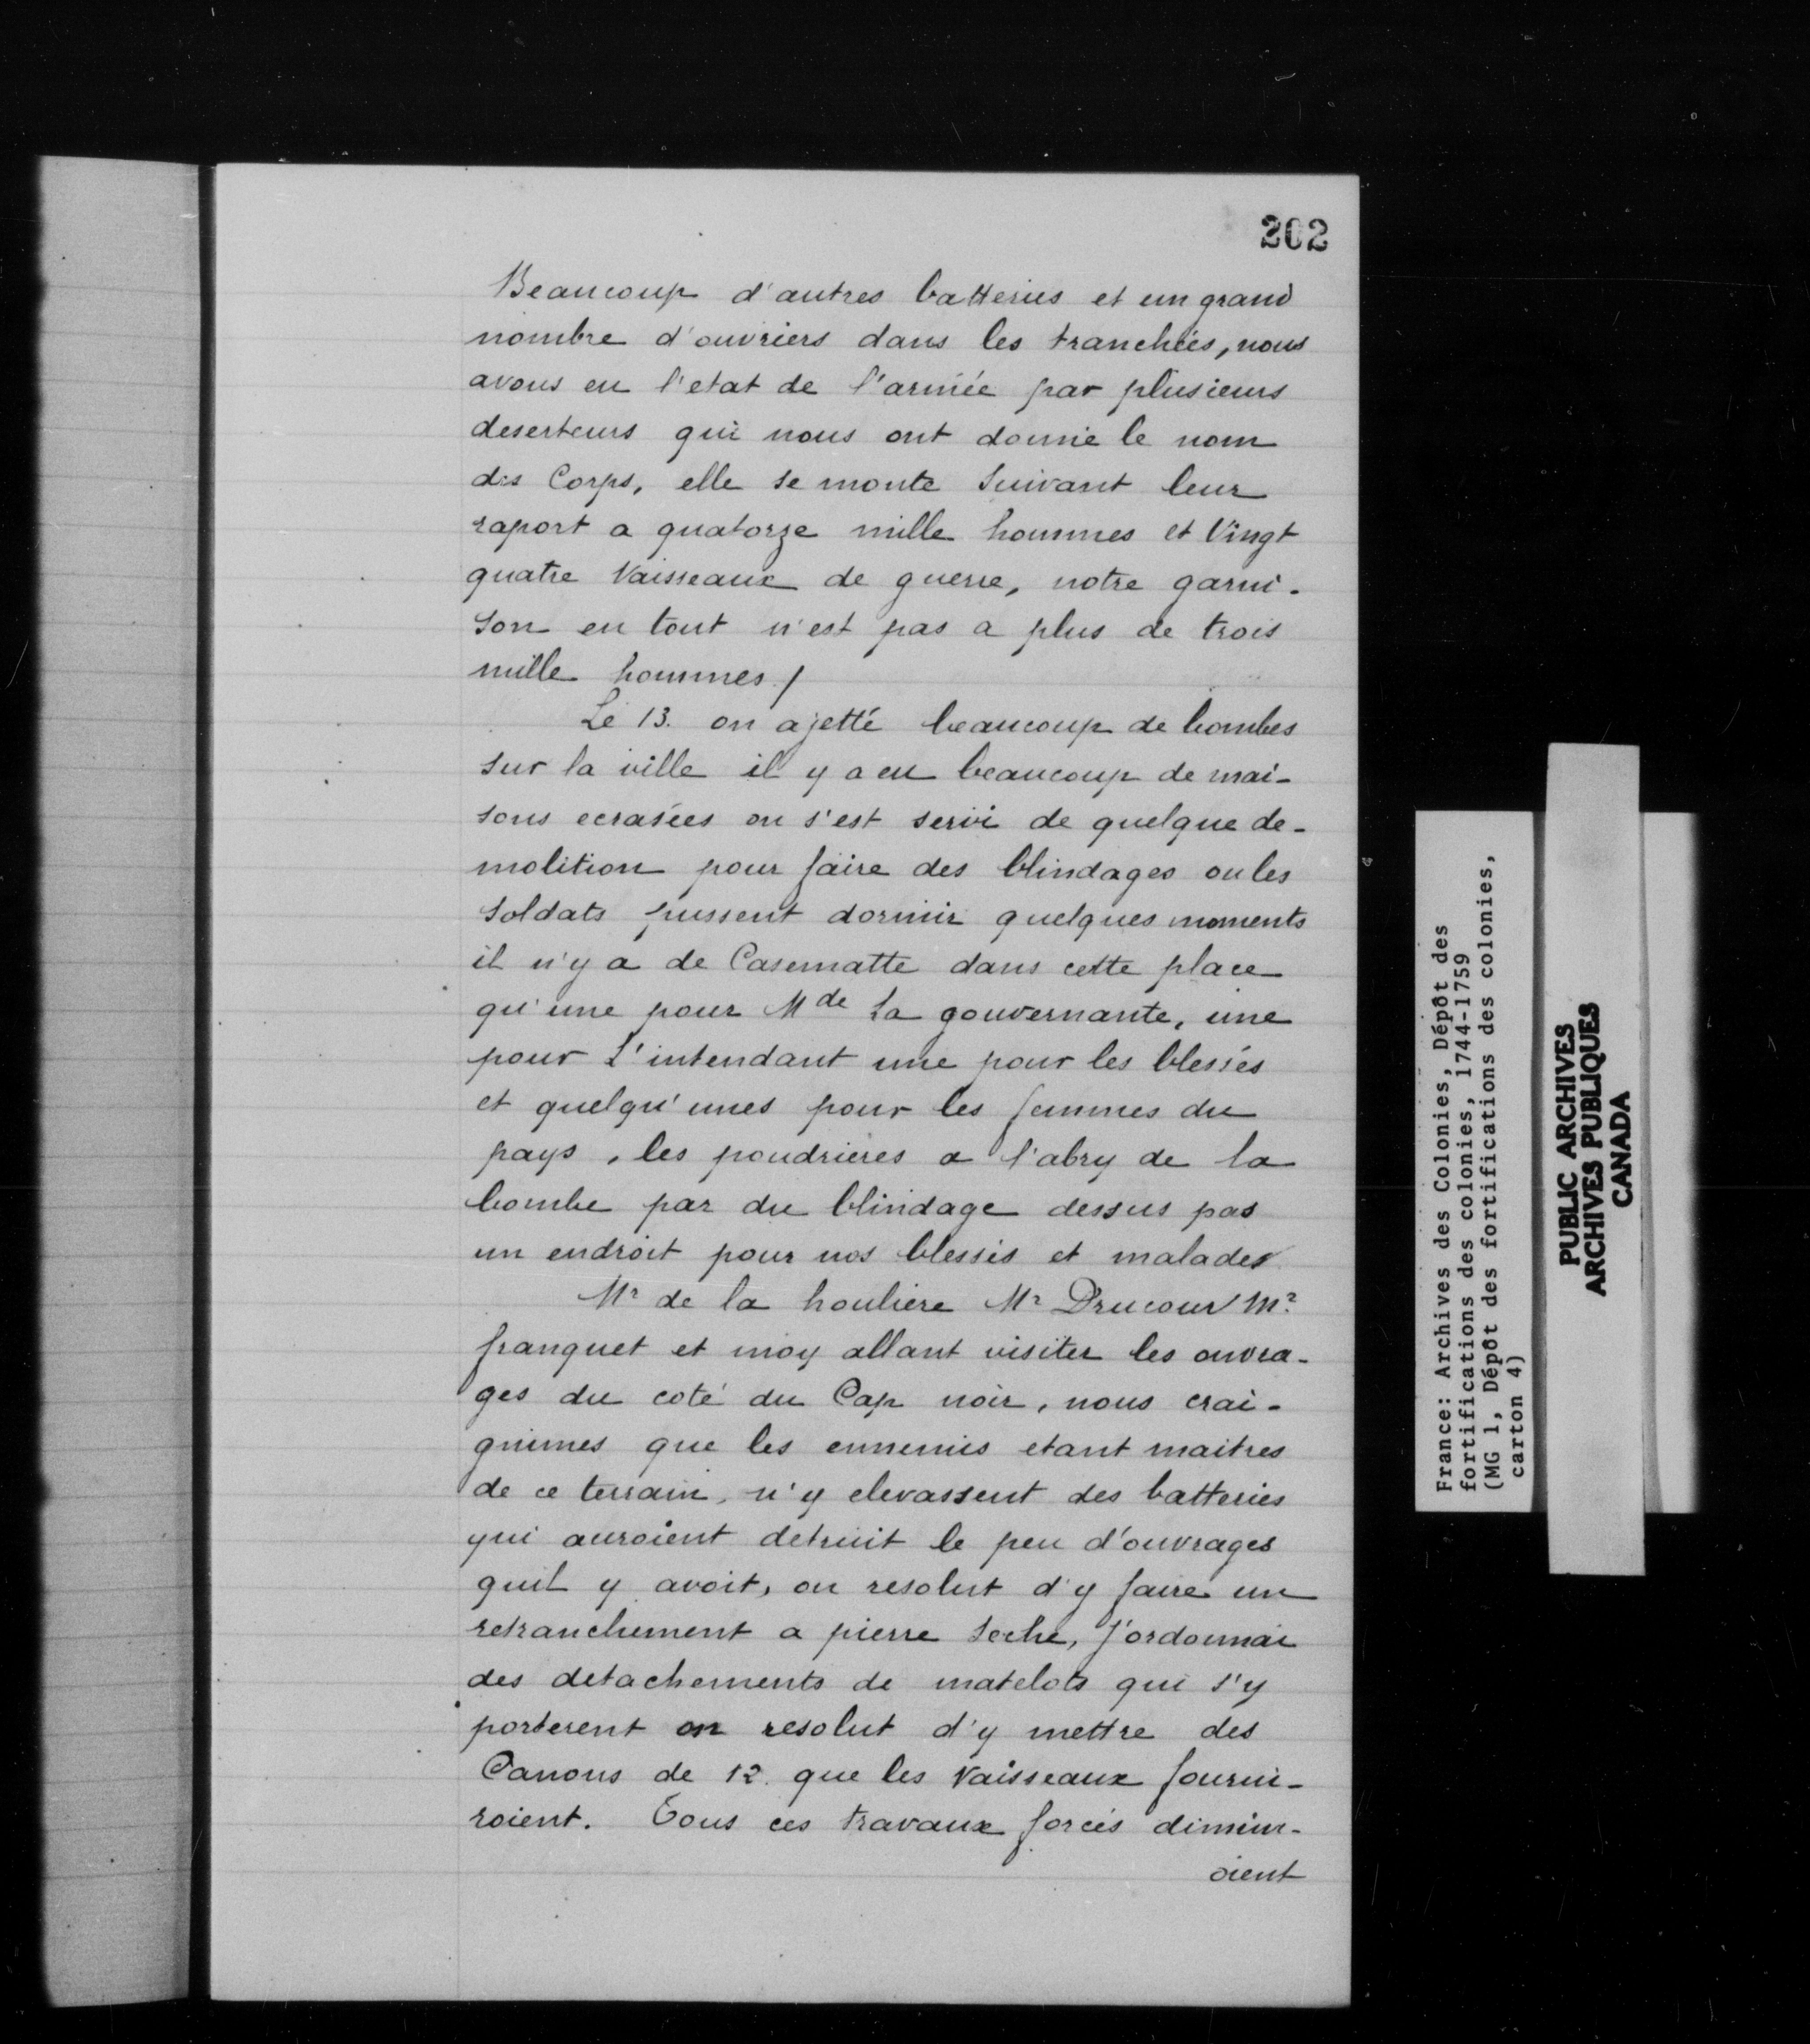 202
Beaucoup d'autres batteries et un grand
nombre d'ouvriers dans les tranchées, nous
avons eu l'etat de l'armée par plusieurs
deserteurs qui nous ont donné le nom
des Corps, elle se monte suivant leur
raport a quatorze mille hommes et Vingt
quatre Vaisseaux de guerre, notre garni-
son en tout n'est pas a plus de trois
mille hommes /
Le 13. on a jetté beaucoup de bombes
sur la ville il y a eu beaucoup de mai-
sons ecrasées on s'est servi de quelque de-
molition pour faire des blindages ou les
soldats pussent dormir quelques moments
il n'y a de Casematte dans cette place
qu'une pour Mde la gouvernante, une
pour L'intendant une pour les blessés
et quelqu'unes pour les femmes du
pays, les poudrieres a l'abry de la
bombe par du blindage dessus pas
un endroit pour nos blessés et malades
Mr de la houliere Mr Drucour Mr
franquet et moy allant visiter les ouvra-
ges du coté du Cap noir, nous crai-
gnimes que les ennemis etant maitres
de ce terrain, n'y elevassent des batteries
qui auroient detruit le peu d'ouvrages
quil y avoit, on resolut d'y faire un
retranchement a pierre seche, j'ordonnai
des detachements de matelots qui s'y
porterent on resolut d'y mettre des
Canons de 12. que les Vaisseaux fourni-
roient. Tous ces travaux forcés diminu-
oient
France: Archives des Colonies, Dépôt des
fortifications des colonies, 1744-1759
(MG 1, Dépôt des fortifications des colonies,
carton 4)
PUBLIC ARCHIVES
ARCHIVES PUBLIQUES
CANADA